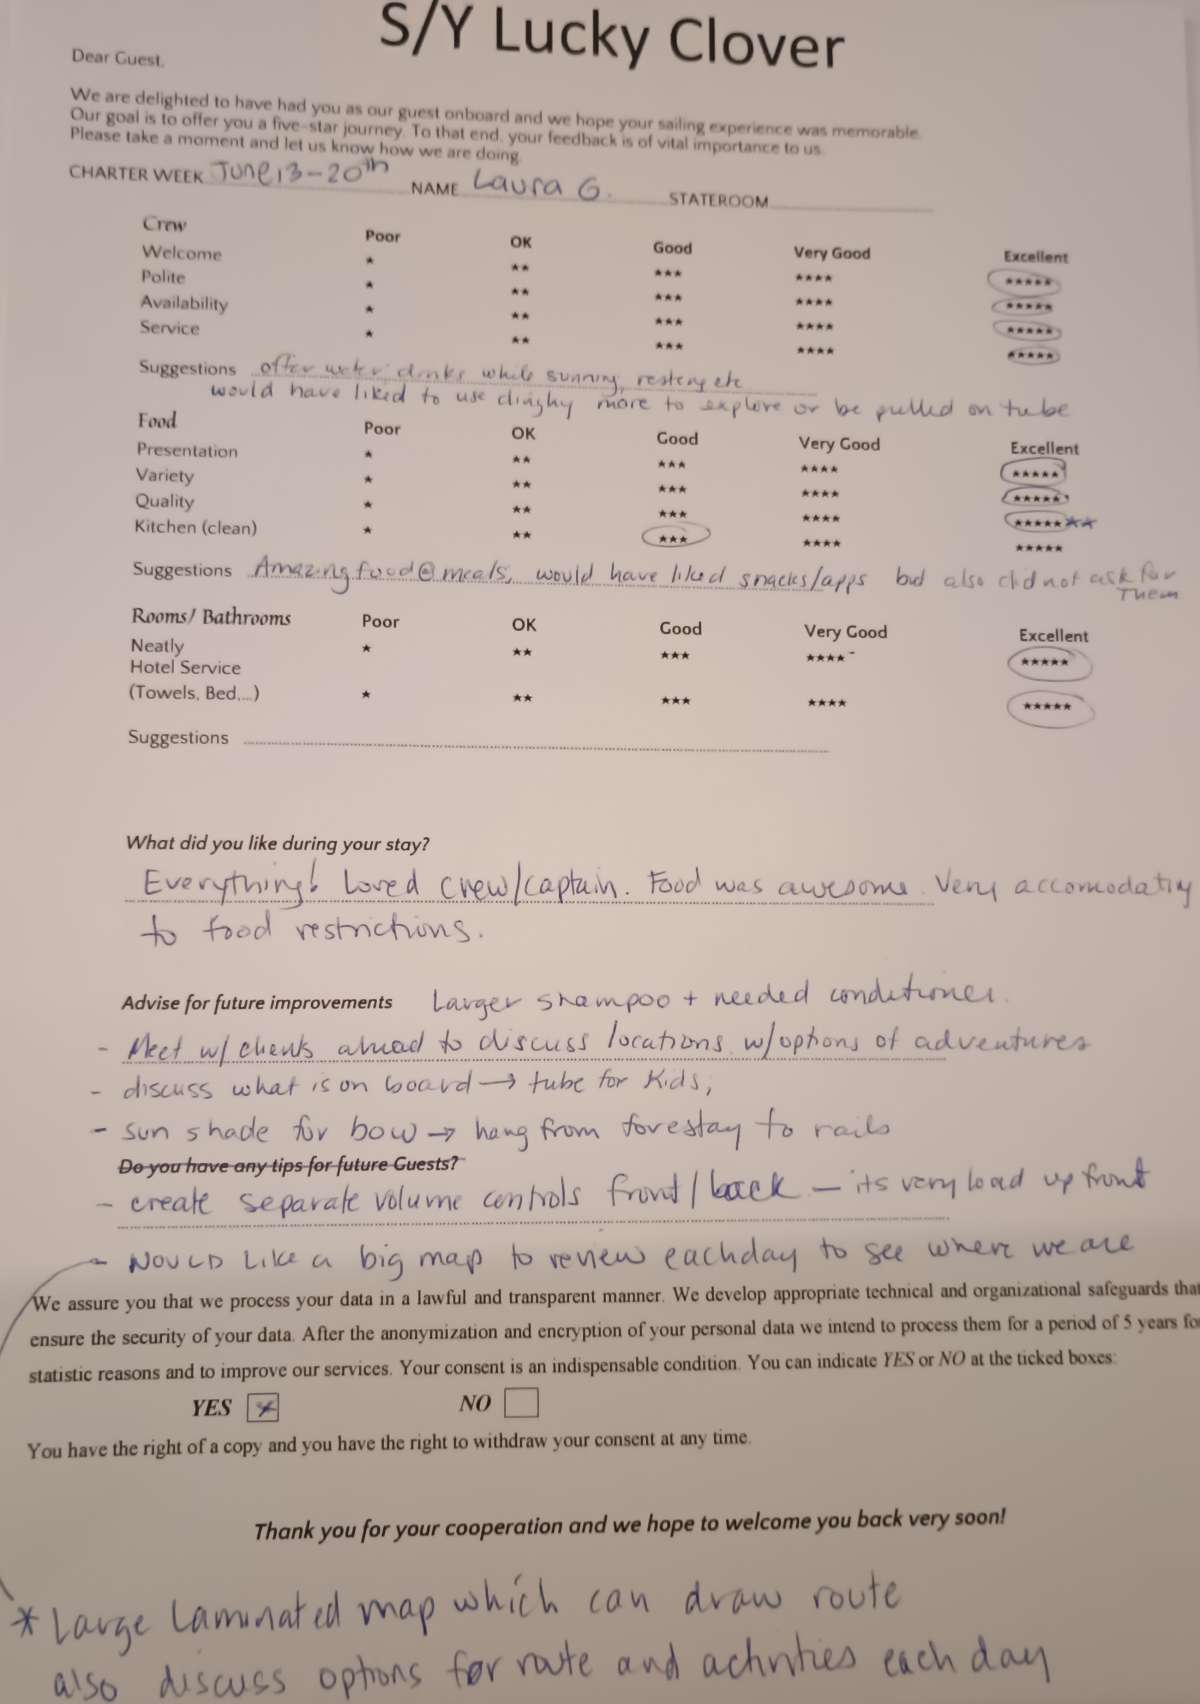 S/Y Lucky Clover
Dear Guest,
We are delighted to have had you as our guest onboard and we hope your sailing experience was memorable.
Our goal is to offer you a five-star journey. To that end, your feedback is of vital importance to us.
Please take a moment and let us know how we are doing.
CHARTER WEEK June 13-20th NAME Laura G. STATEROOM
Crew Poor OK Good Very Good Excellent
Welcome * ** *** **** *****
Polite * ** *** **** *****
Availability * ** *** **** *****
Service * ** *** **** *****
Suggestions offer water drinks while sunning, resting etc
would have liked to use dinghy more to explore or be pulled on tube
Food Poor OK Good Very Good Excellent
Presentation * ** *** **** *****
Variety * ** *** **** *****
Quality * ** *** **** *******
Kitchen (clean) * ** *** **** *****
Suggestions Amazing food @ meals, would have liked snacks/apps but also did not ask for
Them
Rooms/ Bathrooms Poor OK Good Very Good Excellent
Neatly * ** *** **** *****
Hotel Service
(Towels, Bed,...) * ** *** **** *****
Suggestions
What did you like during your stay?
Everything! Loved crew/captain. Food was awesome. Very accomodating
to food restrictions.
Advise for future improvements Larger shampoo + needed conditioner.
- Meet w/ clients ahead to discuss locations w/options of adventures
- discuss what is on board → tube for kids,
- sun shade for bow → hang from forestay to rails
Do you have any tips for future Guests?
- create separate volume controls front/back - its very loud up front
- Would Like a big map to review each day to see where we are
We assure you that we process your data in a lawful and transparent manner. We develop appropriate technical and organizational safeguards that
ensure the security of your data. After the anonymization and encryption of your personal data we intend to process them for a period of 5 years for
statistic reasons and to improve our services. Your consent is an indispensable condition. You can indicate YES or NO at the ticked boxes:
YES x NO
You have the right of a copy and you have the right to withdraw your consent at any time.
Thank you for your cooperation and we hope to welcome you back very soon!
* Large Laminated map which can draw route
also discuss options for route and activities each day